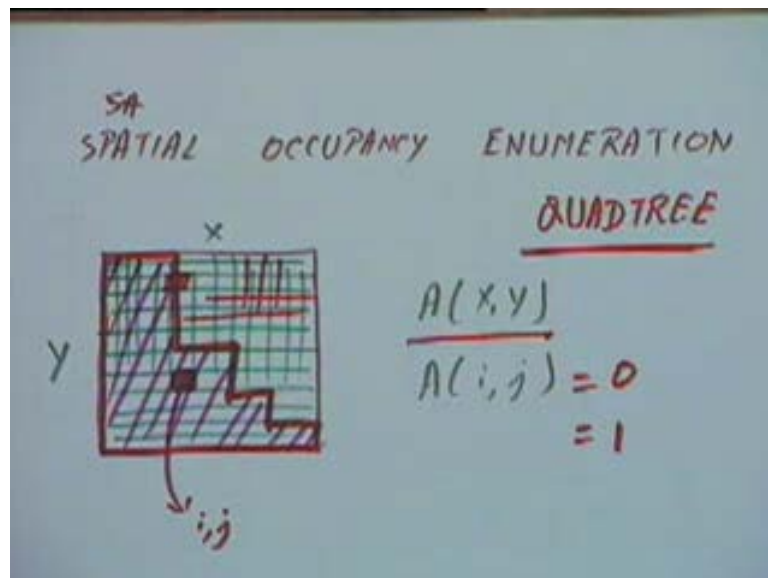 SA
SPATIAL OCCUPANCY ENUMERATION
QUADTREE
X
Y
A(X,Y)
A(i,j) = 0
= 1
i,j